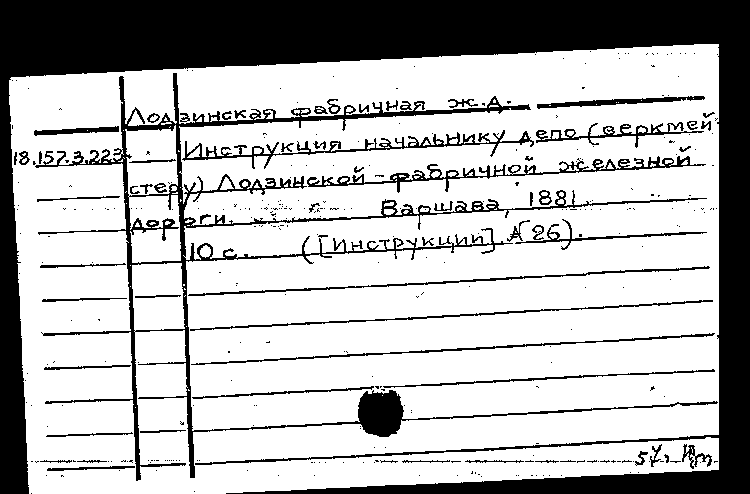 Лодзинская фабричная ж.д.
18.157.3.223. Инструкция начальнику депо (веркмей-
стеру) Лодзинской-фабричной железной
дороги. Варшава, 1881.
10 с. ([Инструкции]. А 26).
57,